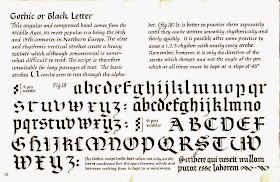 Gothic or Black Letter
This angular and compressed hand comes from the
Middle Ages, its most popular era being the 14th
and 15th centuries in Northern Europe. The close
and rhythmic vertical strokes create a heavy
texture which although ornamental is somewhat
difficult to read. The script is therefore
unsuitable for long passages of text. The basic
strokes can be seen to run through the alpha-
bet. (Fig 18) It is better to practise them separately
until they can be written smoothly, rhythmically and
fairly quickly. It is possible after some practise to
use a 1,2,3 rhythm with nearly every stroke.
Remember, however, it is only the direction of the
stroke which changes and not the angle of the pen
which at all times must be kept at a slope of 45°
Fig 18
abcdefghijklmno
pqrstuvwxyz:
abcdefghijklmno
pqrstuvwxyz:
ABCDEF
GHIJKLMNOPQRSTUV
WXYZ:
The Gothic script looks best when not only are the letters
condensed but the space between words and
between writing lines is kept to a minimum.
Scribere qui nescit nullum
putat esse laborem